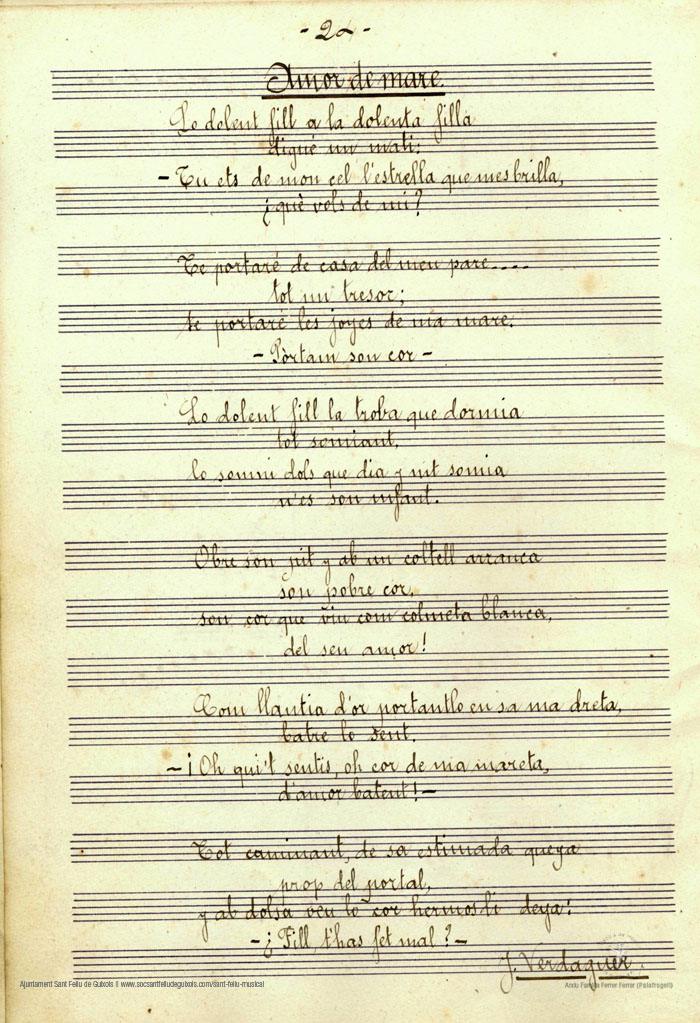 - 2 -
Amor de mare.
Lo dolent fill a la dolenta filla
digué un matí:
- Tu ets de mon cel l'estrella que mes brilla,
¿què vols de mi?
Te portaré de casa del meu pare....
tot un tresor;
te portaré les joyes de ma mare.
- Pòrtam son cor -
Lo dolent fill la troba que dormia
tot somiant,
lo somni dols que dia y nit somia
n'es son infant.
Obre son pit y ab un coltell arranca
son pobre cor,
son cor que viu com colmeta blanca,
del seu amor!
Com llantia d'or portantlo en sa ma dreta,
batre lo sent.
- ¡Oh qui't sentis, oh cor de mia mareta,
d'amor batent! -
Tot caminant, de sa estimada queya
prop del portal,
y ab dolsa veu lo cor hermos li deya:
- ¿Fill, t'has fet mal? -
J. Verdaguer.
Ajuntament Sant Feliu de Guíxols || www.socsantfeliudeguixols.com/sant-feliu-musical
Arxiu Família Ferrer Ferrer (Palafrugell)